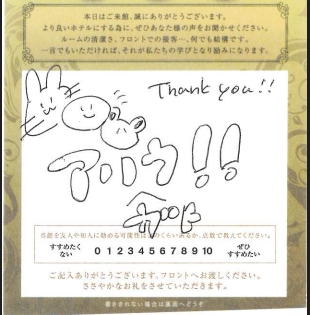 本日はご来館、誠にありがとうございます。
より良いホテルにする為に、ぜひあなた様の声をお聞かせください。
ルームの清潔さ、フロントでの接客…、何でも結構です。
一言でもいただければ、それが私たちの学びとなり励みになります。
Thank you!!
アリウ!!
当館を友人や知人に勧める可能性はどのくらいあるか、点数で教えてください。
すすめたくない 0 1 2 3 4 5 6 7 8 9 10 ぜひすすめたい
ご記入ありがとうございます。フロントへお渡しください。
ささやかなお礼をさせていただきます。
書ききれない場合は裏面へどうぞ